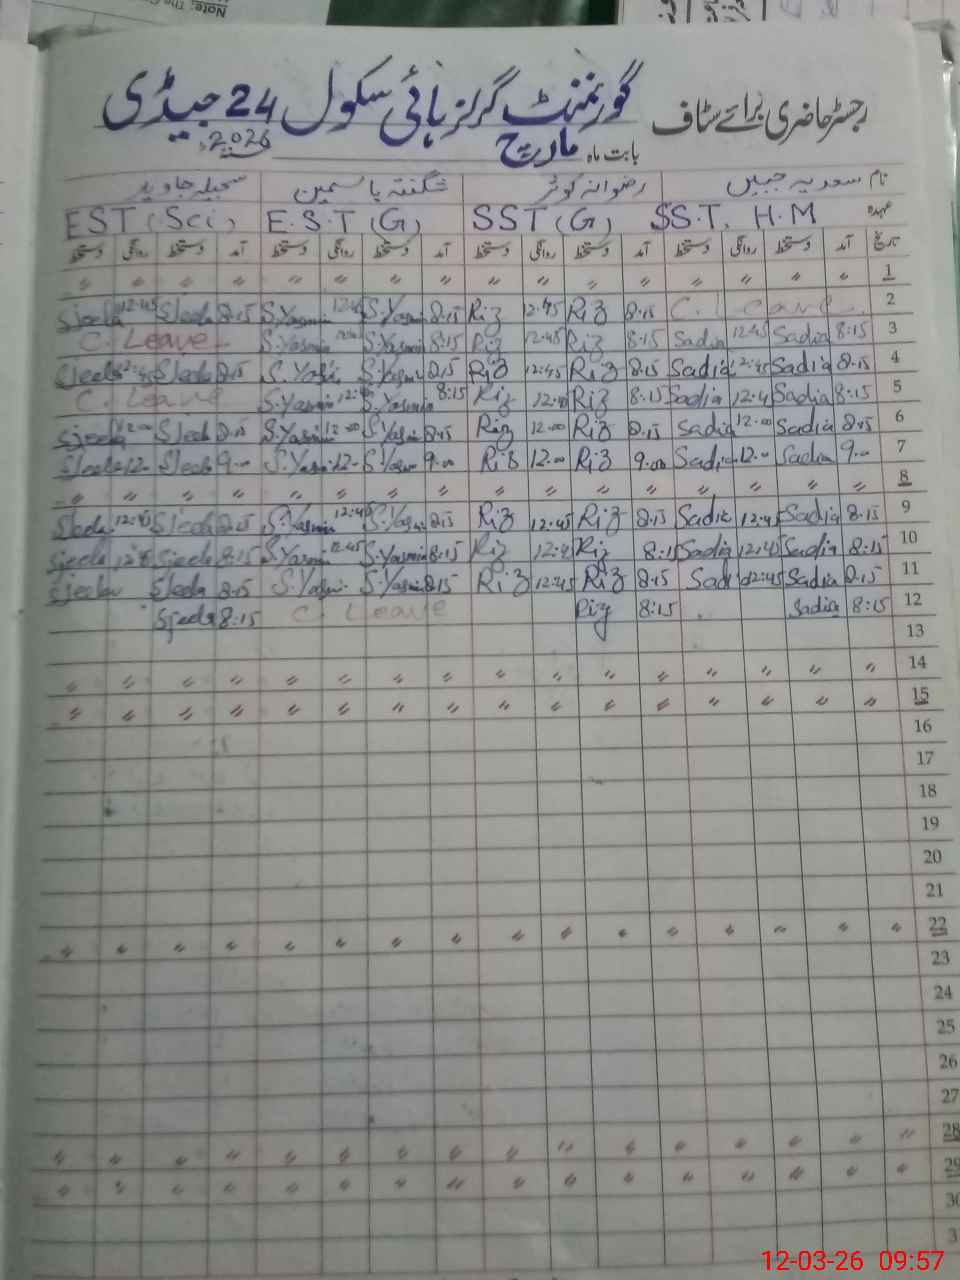 گورنمنٹ گرلز ہائی سکول 24 جیڈی
رجسٹر حاضری برائے سٹاف
بابت ماہ مارچ 2026ء
نام سعدیہ جبیں رضوانہ کوثر شگفتہ یاسمین سجیلہ جاوید
عہدہ SS.T. H.M SST (G) E.S.T (G) EST (Sci)
تاریخ آمد دستخط روانگی دستخط آمد دستخط روانگی دستخط آمد دستخط روانگی دستخط آمد دستخط روانگی دستخط
1 〃 〃 〃 〃 〃 〃 〃 〃 〃 〃 〃 〃 〃 〃 〃 〃
2 C. Leave 8.15 Riz 12.45 Riz 8.15 S.Yasmin 12.45 S.Yasmin 8.15 Sjeela 12.45 Sjeela
3 8:15 Sadia 12.45 Sadia 8.15 Riz 12.45 Riz 8:15 S.Yasmin S.Yasmin C. Leave
4 8.15 Sadia 12.45 Sadia 8.15 Riz 12.45 Riz 8.15 S.Yasmin S.Yasmin 8.15 Sjeela 12.45 Sjeela
5 8:15 Sadia 12.4 Sadia 8.15 Riz Riz 8:15 S.Yasmin S.Yasmin C. Leave
6 8.15 Sadia 12.00 Sadia 8.15 Riz 12.00 Riz 8.15 S.Yasmin 12.00 S.Yasmin 8.15 Sjeela 12.00 Sjeela
7 9.00 Sadia 12.00 Sadia 9.00 Riz 12.00 Riz 9.00 S.Yasmin 12 S.Yasmin 9.00 Sjeela 12 Sjeela
8 〃 〃 〃 〃 〃 〃 〃 〃 〃 〃 〃 〃 〃 〃 〃 〃
9 8.15 Sadia 12.45 Sadia 8.15 Riz 12.45 Riz 8.15 S.Yasmin 12:45 S.Yasmin 8.15 Sjeela 12:45 Sjeela
10 8:15 Sadia 12:45 Sadia 8:15 Riz 12:4 Riz 8:15 S.Yasmin 12.45 S.Yasmin 8:15 Sjeela Sjeela
11 8.15 Sadia 12:45 Sadia 8.15 Riz 12:45 Riz 8.15 S.Yasmin S.Yasmin 8.15 Sjeela Sjeela
12 8:15 Sadia 8:15 Riz C. Leave 8:15 Sjeela
13
14 〃 〃 〃 〃 〃 〃 〃 〃 〃 〃 〃 〃 〃 〃 〃 〃
15 〃 〃 〃 〃 〃 〃 〃 〃 〃 〃 〃 〃 〃 〃 〃 〃
16
17
18
19
20
21
22 〃 〃 〃 〃 〃 〃 〃 〃 〃 〃 〃 〃 〃 〃 〃 〃
23
24
25
26
27
28 〃 〃 〃 〃 〃 〃 〃 〃 〃 〃 〃 〃 〃 〃 〃 〃
29 〃 〃 〃 〃 〃 〃 〃 〃 〃 〃 〃 〃 〃 〃 〃 〃
30
12-03-26 09:57